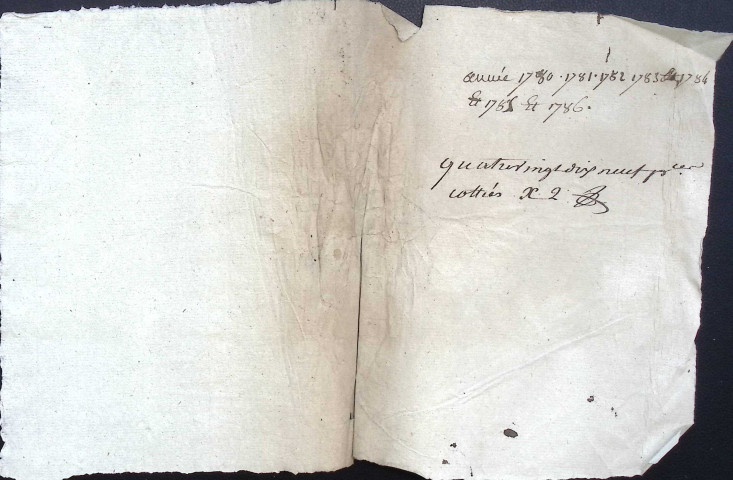 année 1780 · 1781 · 1782 1783 et 1784
Et 1785 Et 1786.
quatrevingt dix neuf pces
cottiés X 2